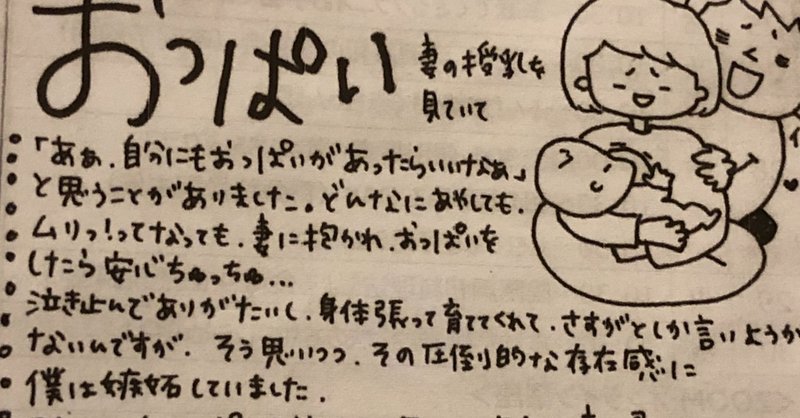 おっぱい
妻の授乳を
見ていて
「あぁ、自分にもおっぱいがあったらいいなぁ」
と思うことがありました。どんなにあやしても、
ムリっ!ってなっても、妻に抱かれ、おっぱいを
したら安心ちゅっちゅ…
泣き止んでありがたいし、身体張って育ててくれて、さすがとしか言いようが
ないんですが、そう思いつつ、その圧倒的な存在感に
僕は嫉妬していました。